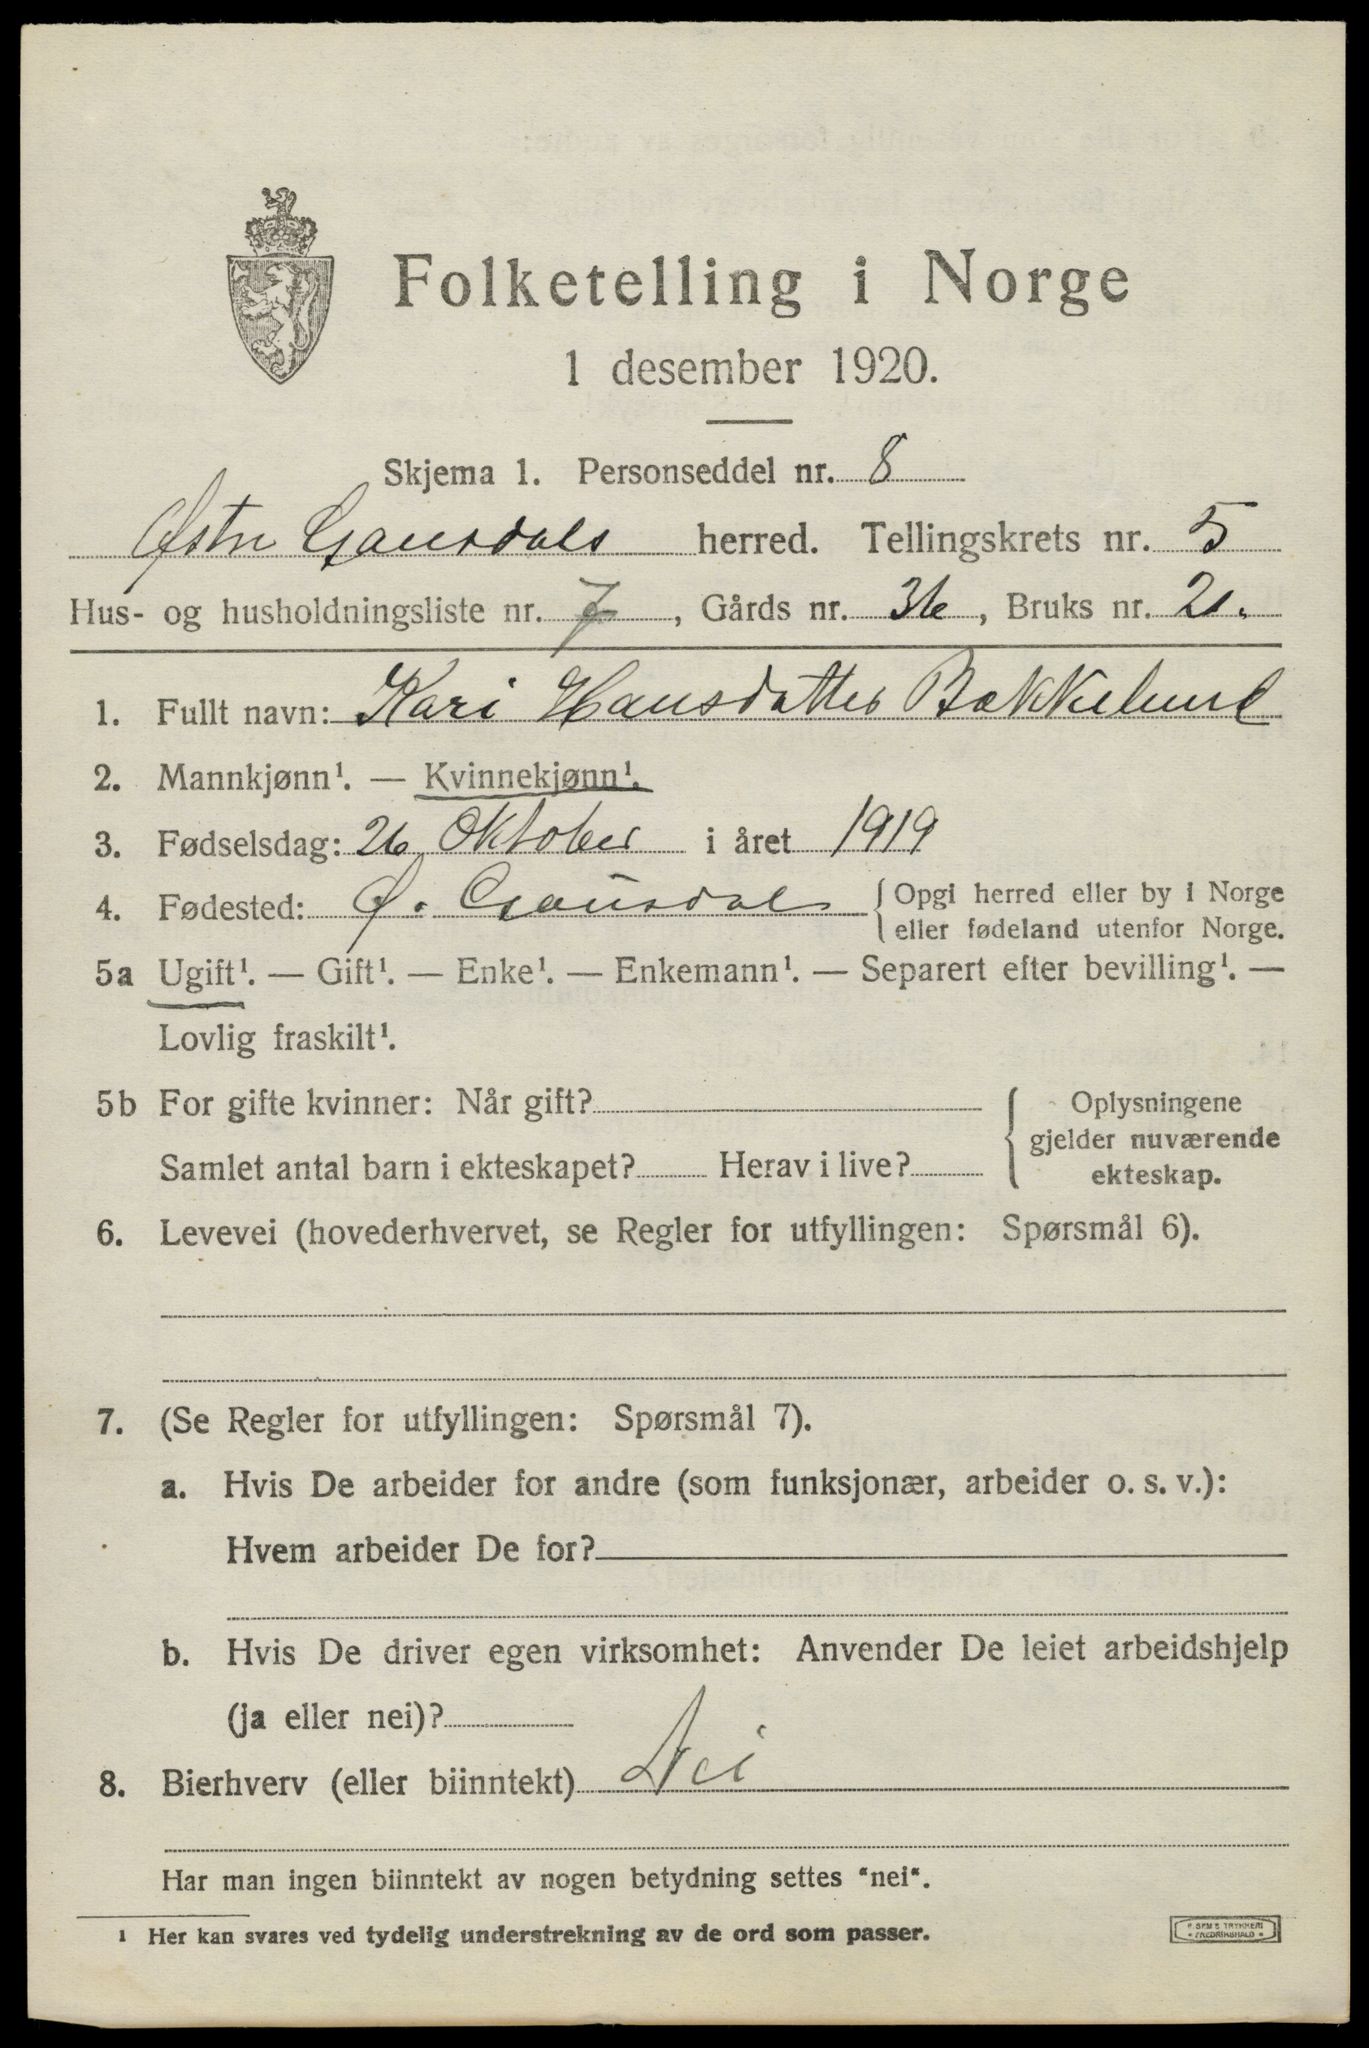 Folketelling i Norge
1 desember 1920.
Skjema 1. Personseddel nr. 8
Østre Gausdals herred. Tellingskrets nr. 5
Hus- og husholdningsliste nr. 7, Gårds nr. 36, Bruks nr. 21.
1. Fullt navn: Kari Hansdatter Bakkelund
2. Mannkjønn¹. — Kvinnekjønn¹.
3. Fødselsdag: 26 Oktober i året 1919
4. Fødested: Ø. Gausdal {Opgi herred eller by i Norge
eller fødeland utenfor Norge.
5a Ugift¹. — Gift¹. — Enke¹. — Enkemann¹. — Separert efter bevilling¹. —
Lovlig fraskilt¹.
5b For gifte kvinner: Når gift? { Oplysningene
gjelder nuværende
Samlet antal barn i ekteskapet? Herav i live? ekteskap.
6. Levevei (hovederhvervet, se Regler for utfyllingen: Spørsmål 6).
7. (Se Regler for utfyllingen: Spørsmål 7).
a. Hvis De arbeider for andre (som funksjonær, arbeider o. s. v.):
Hvem arbeider De for?
b. Hvis De driver egen virksomhet: Anvender De leiet arbeidshjelp
(ja eller nei)?
8. Bierhverv (eller biinntekt) Nei
Har man ingen biinntekt av nogen betydning settes "nei".
¹ Her kan svares ved tydelig understrekning av de ord som passer.
TRYKKERI
FREDRIKSHALD